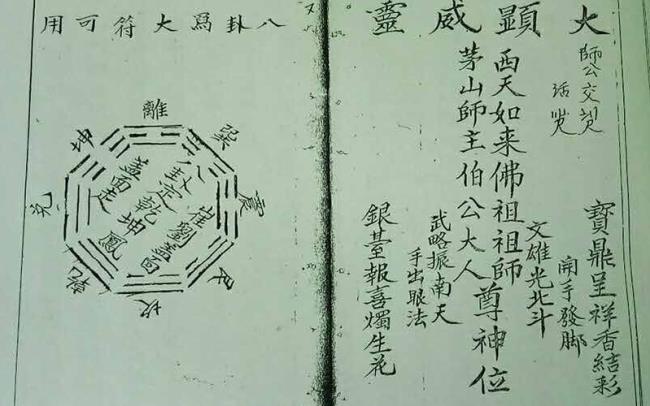 大顯威靈
師公交
寶鼎呈祥香結彩
開手發脚
文雄光北斗
西天如来佛祖祖師
茅山師主伯公大人
尊神位
武略振南天
手出眼法
銀臺報喜燭生花
八卦爲大符可用
離
巽
震
艮
坎
乾
兌
坤
崔劉蓋面
八卦定乾坤鳳
蓋面走